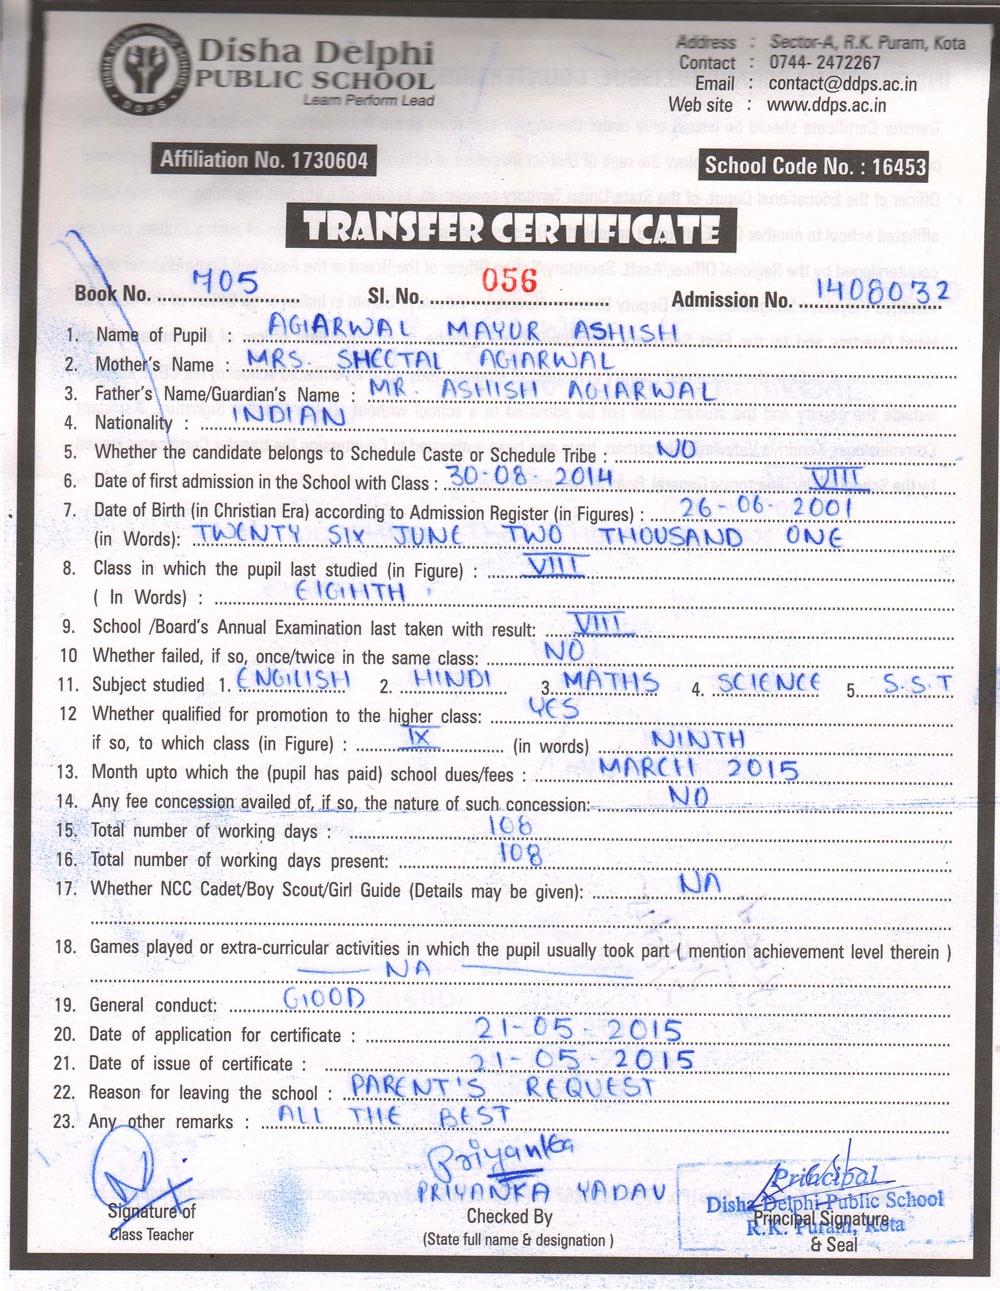 Disha Delphi
PUBLIC SCHOOL
Learn Perform Lead
DDPS
Address : Sector-A, R.K. Puram, Kota
Contact : 0744- 2472267
Email : contact@ddps.ac.in
Web site : www.ddps.ac.in
Affiliation No. 1730604
School Code No. : 16453
TRANSFER CERTIFICATE
Book No. 705 Sl. No. 056 Admission No. 1408032
1. Name of Pupil : AGARWAL MAYUR ASHISH
2. Mother's Name : MRS. SHEETAL AGARWAL
3. Father's Name/Guardian's Name : MR. ASHISH AGARWAL
4. Nationality : INDIAN
5. Whether the candidate belongs to Schedule Caste or Schedule Tribe : NO
6. Date of first admission in the School with Class : 30-08-2014 VIII
7. Date of Birth (in Christian Era) according to Admission Register (in Figures) : 26-06-2001
(in Words): TWENTY SIX JUNE TWO THOUSAND ONE
8. Class in which the pupil last studied (in Figure) : VIII
( In Words) : EIGHTH
9. School /Board's Annual Examination last taken with result: VIII
10 Whether failed, if so, once/twice in the same class: NO
11. Subject studied 1. ENGLISH 2. HINDI 3. MATHS 4. SCIENCE 5. S.S.T
12 Whether qualified for promotion to the higher class: YES
if so, to which class (in Figure) : IX (in words) NINTH
13. Month upto which the (pupil has paid) school dues/fees : MARCH 2015
14. Any fee concession availed of, if so, the nature of such concession: NO
15. Total number of working days : 108
16. Total number of working days present: 108
17. Whether NCC Cadet/Boy Scout/Girl Guide (Details may be given): NA
18. Games played or extra-curricular activities in which the pupil usually took part ( mention achievement level therein )
NA
19. General conduct: GOOD
20. Date of application for certificate : 21-05-2015
21. Date of issue of certificate : 21-05-2015
22. Reason for leaving the school : PARENT'S REQUEST
23. Any other remarks : ALL THE BEST
Priyanka
PRIYANKA YADAV
Signature of
Class Teacher
Checked By
(State full name & designation )
Principal
Disha Delphi Public School
R.K. Puram, Kota
Principal Signature
& Seal